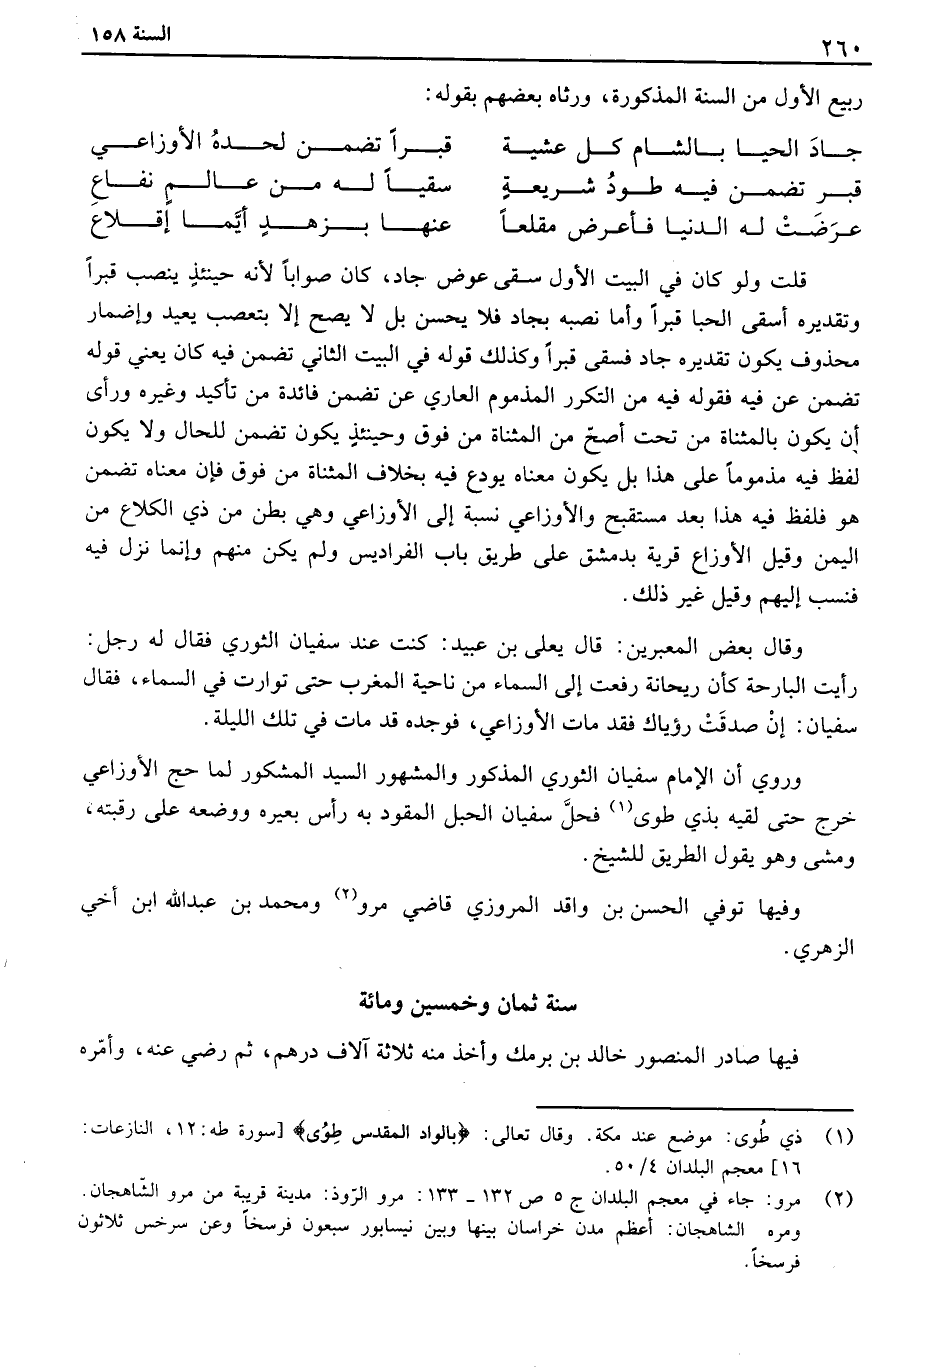 ٢٦٠ السنة ١٥٨
ربيع الأول من السنة المذكورة، ورثاه بعضهم بقوله:
جـاد الحيـا بـالشـام كـل عشيـة قبـراً تضمـن لحـدهُ الأوزاعـي
قبـر تضمـن فيـه طـودُ شـريعـةٍ سقيـاً لـه مـن عـالـمٍ نفـاعِ
عـرَضَـتْ لـه الـدنيـا فـأعـرض مقلعـاً عنهـا بـزهـدٍ أيَّمـا إقـلاعَ
قلت ولو كان في البيت الأول سقى عوض جاد، كان صواباً لأنه حينئذٍ ينصب قبراً
وتقديره أسقى الحبا قبراً وأما نصبه بجاد فلا يحسن بل لا يصح إلا بتعصب يعيد وإضمار
محذوف يكون تقديره جاد فسقى قبراً وكذلك قوله في البيت الثاني تضمن فيه كان يعني قوله
تضمن عن فيه فقوله فيه من التكرر المذموم العاري عن تضمن فائدة من تأكيد وغيره ورأى
أن يكون بالمثناة من تحت أصحّ من المثناة من فوق وحينئذٍ يكون تضمن للحال ولا يكون
لفظ فيه مذموماً على هذا بل يكون معناه يودع فيه بخلاف المثناة من فوق فإن معناه تضمن
هو فلفظ فيه هذا بعد مستقبح والأوزاعي نسبة إلى الأوزاعي وهي بطن من ذي الكلاع من
اليمن وقيل الأوزاع قرية بدمشق على طريق باب الفراديس ولم يكن منهم وإنما نزل فيه
فنسب إليهم وقيل غير ذلك.
وقال بعض المعبرين: قال يعلى بن عبيد: كنت عند سفيان الثوري فقال له رجل:
رأيت البارحة كأن ريحانة رفعت إلى السماء من ناحية المغرب حتى توارت في السماء، فقال
سفيان: إنْ صدقَتْ رؤياك فقد مات الأوزاعي، فوجده قد مات في تلك الليلة.
وروي أن الإمام سفيان الثوري المذكور والمشهور السيد المشكور لما حج الأوزاعي
خرج حتى لقيه بذي طوى(١) فحلَّ سفيان الحبل المقود به رأس بعيره ووضعه على رقبته،
ومشى وهو يقول الطريق للشيخ.
وفيها توفي الحسن بن واقد المروزي قاضي مرو(٢) ومحمد بن عبدالله ابن أخي
الزهري.
سنة ثمان وخمسين ومائة
فيها صادر المنصور خالد بن برمك وأخذ منه ثلاثة آلاف درهم، ثم رضي عنه، وأمّره
(١) ذي طُوى: موضع عند مكة. وقال تعالى: ﴿بالواد المقدس طِوُى﴾ [سورة طه: ١٢، النازعات:
١٦] معجم البلدان ٤/ ٥٠.
(٢) مرو: جاء في معجم البلدان ج ٥ ص ١٣٢ ـ ١٣٣: مرو الرّوذ: مدينة قريبة من مرو الشّاهجان.
ومره الشاهجان: أعظم مدن خراسان بينها وبين نيسابور سبعون فرسخاً وعن سرخس ثلاثون
فرسخاً.